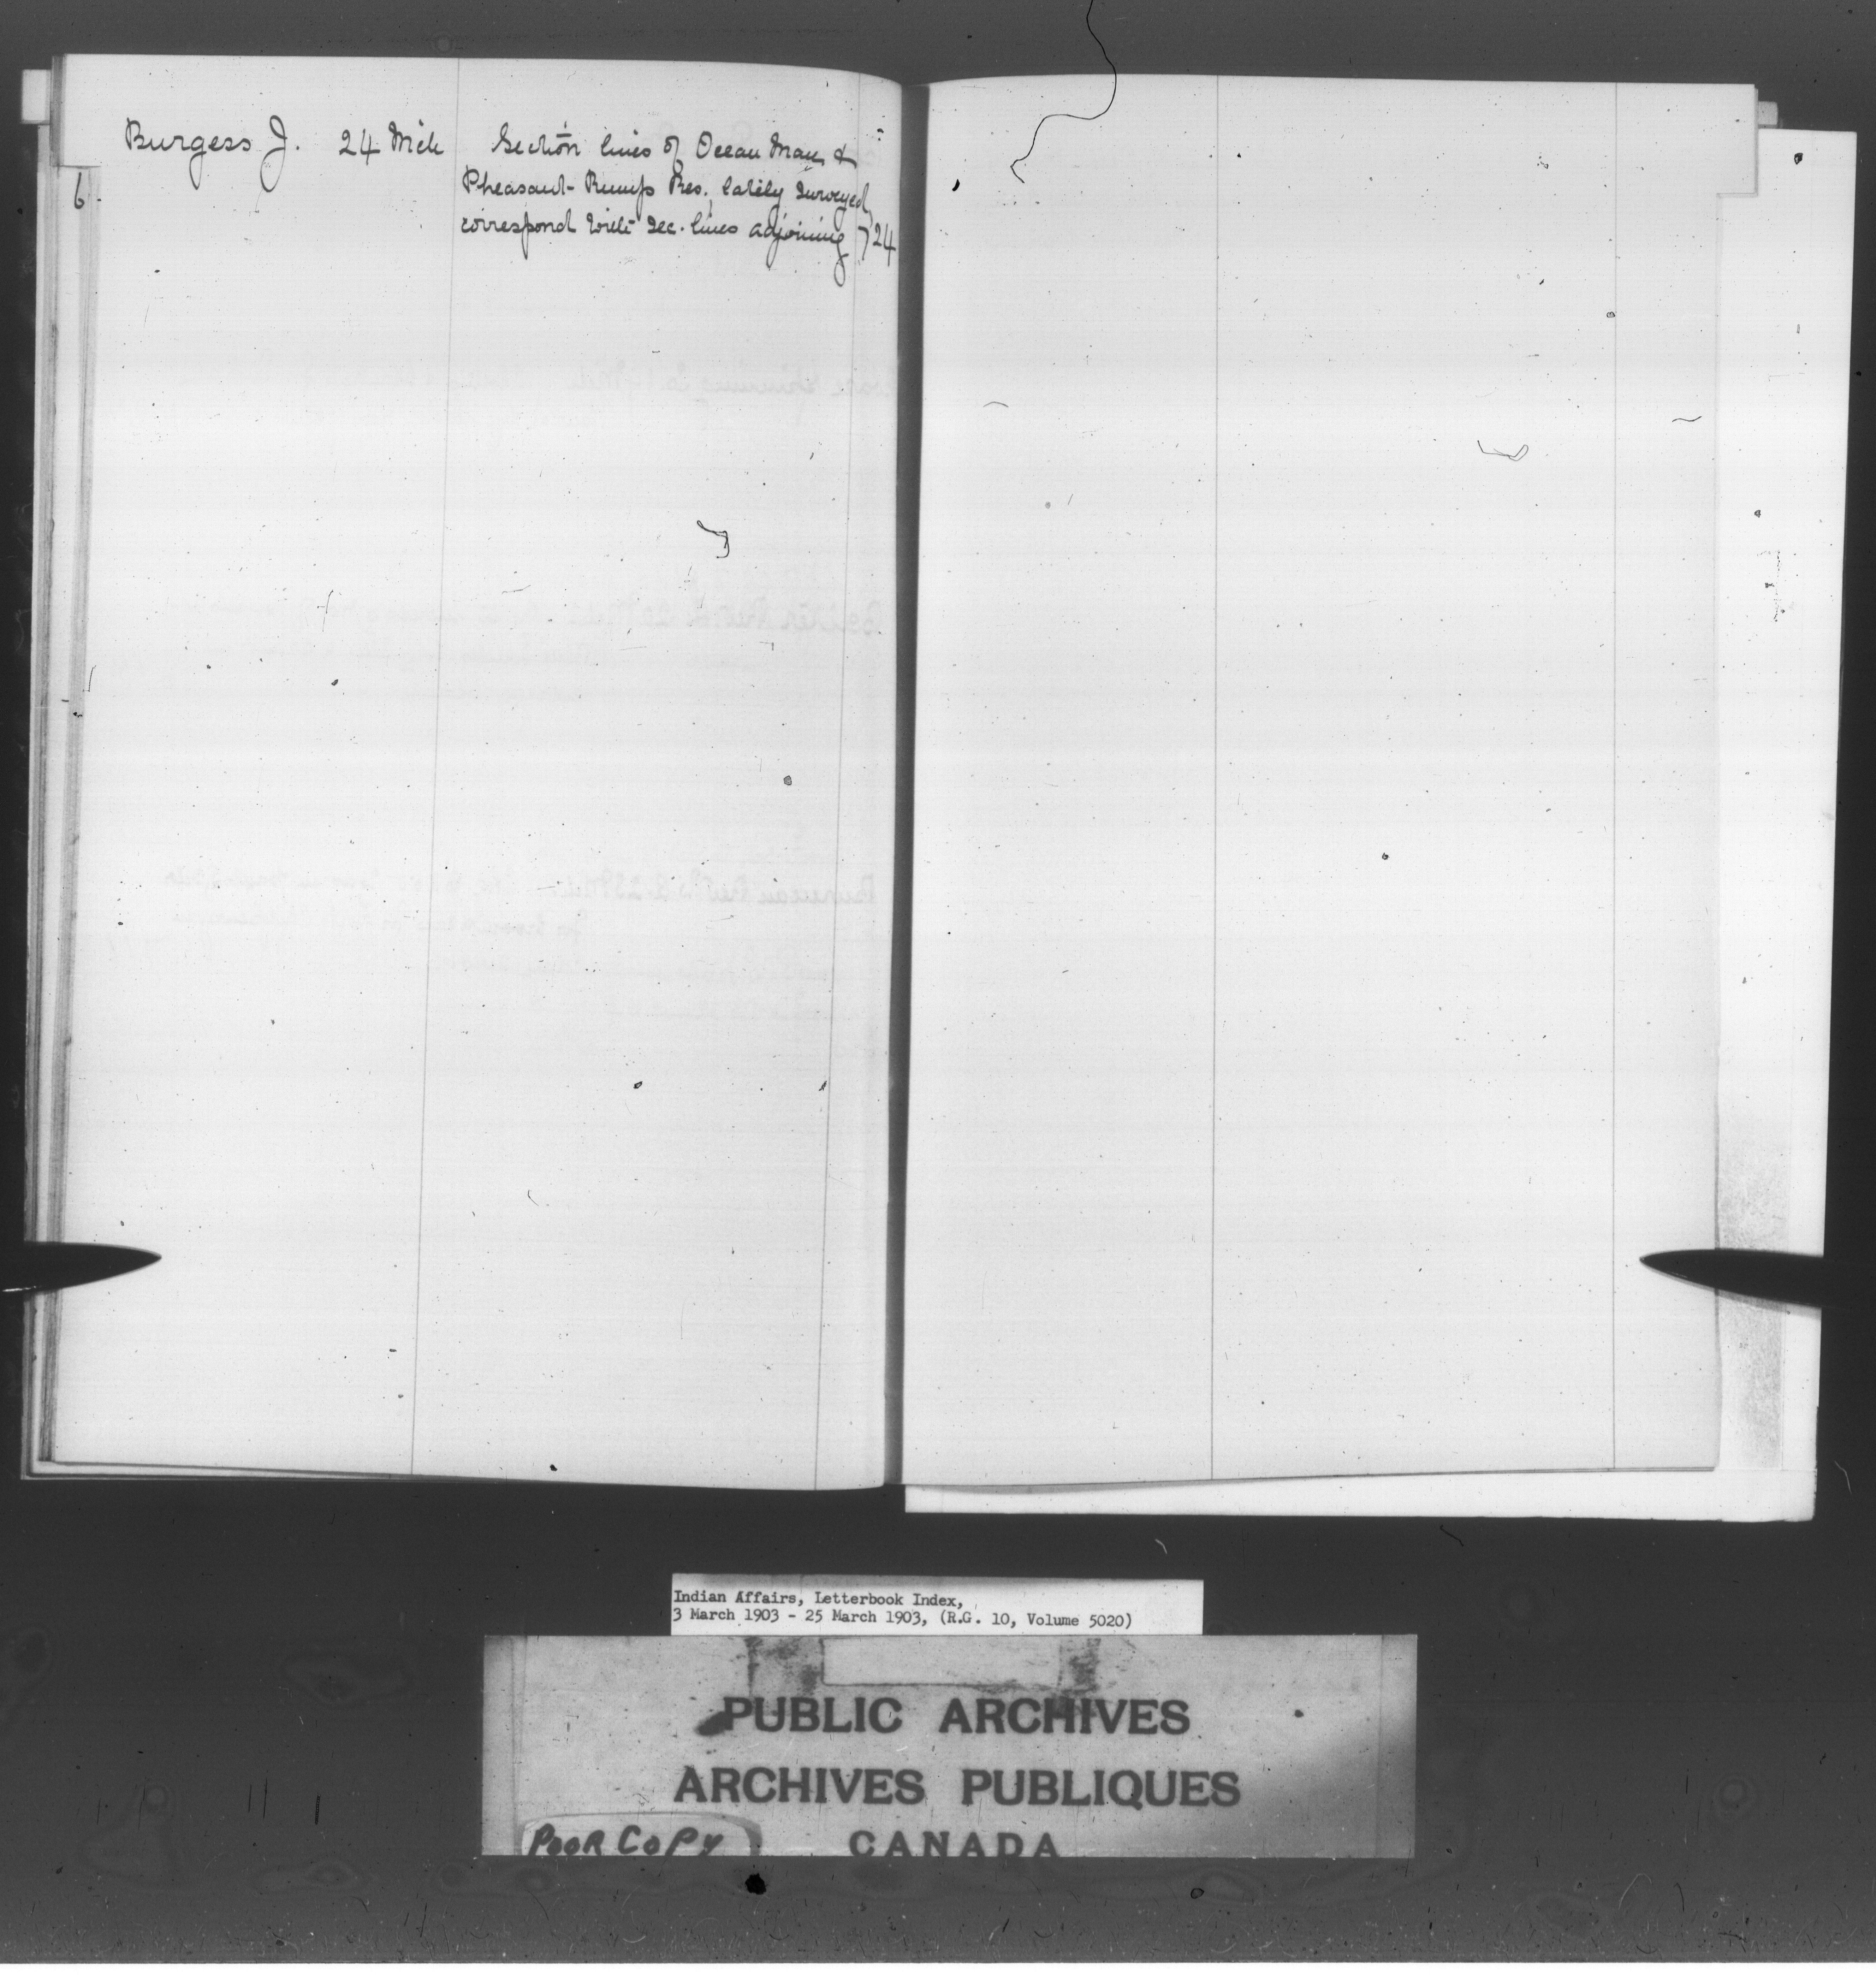 Burgess J. 24 Mch Section lines of Ocean Man &
Pheasant Rumps Res. lately surveyed,
correspond with Sec. lines adjoining 724
6
Indian Affairs, Letterbook Index,
3 March 1903 - 25 March 1903, (R.G. 10, Volume 5020)
PUBLIC ARCHIVES
ARCHIVES PUBLIQUES
POOR COPY CANADA